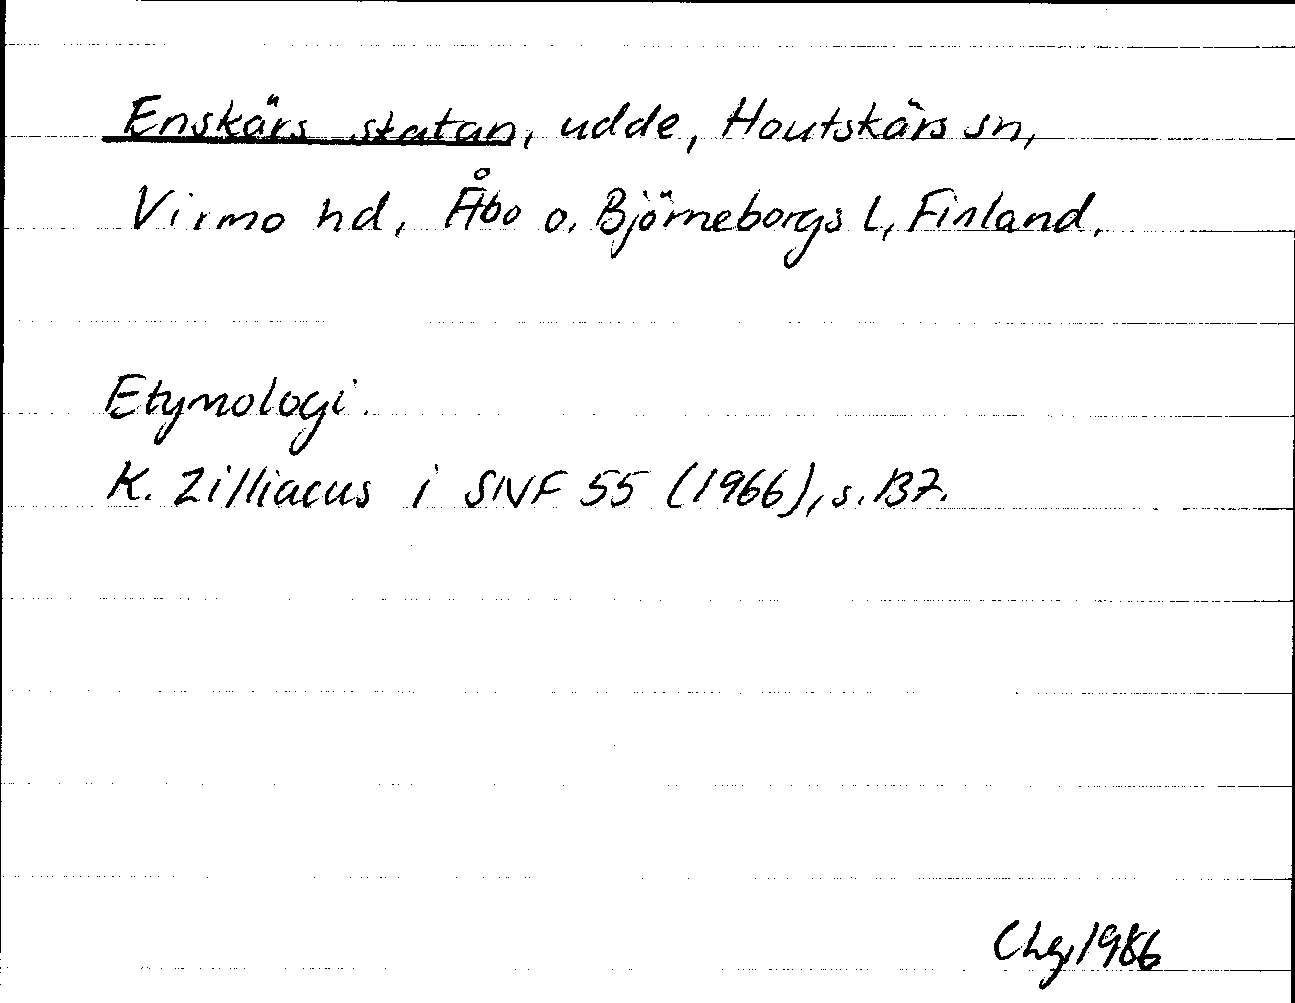 Enskärs statan, udde, Houtskärs sn,
Virmo hd, Åbo o. Björneborgs l, Finland.
Etymologi.
K. Zilliacus i SNF 55 (1966), s. 137.
Chg, 1986